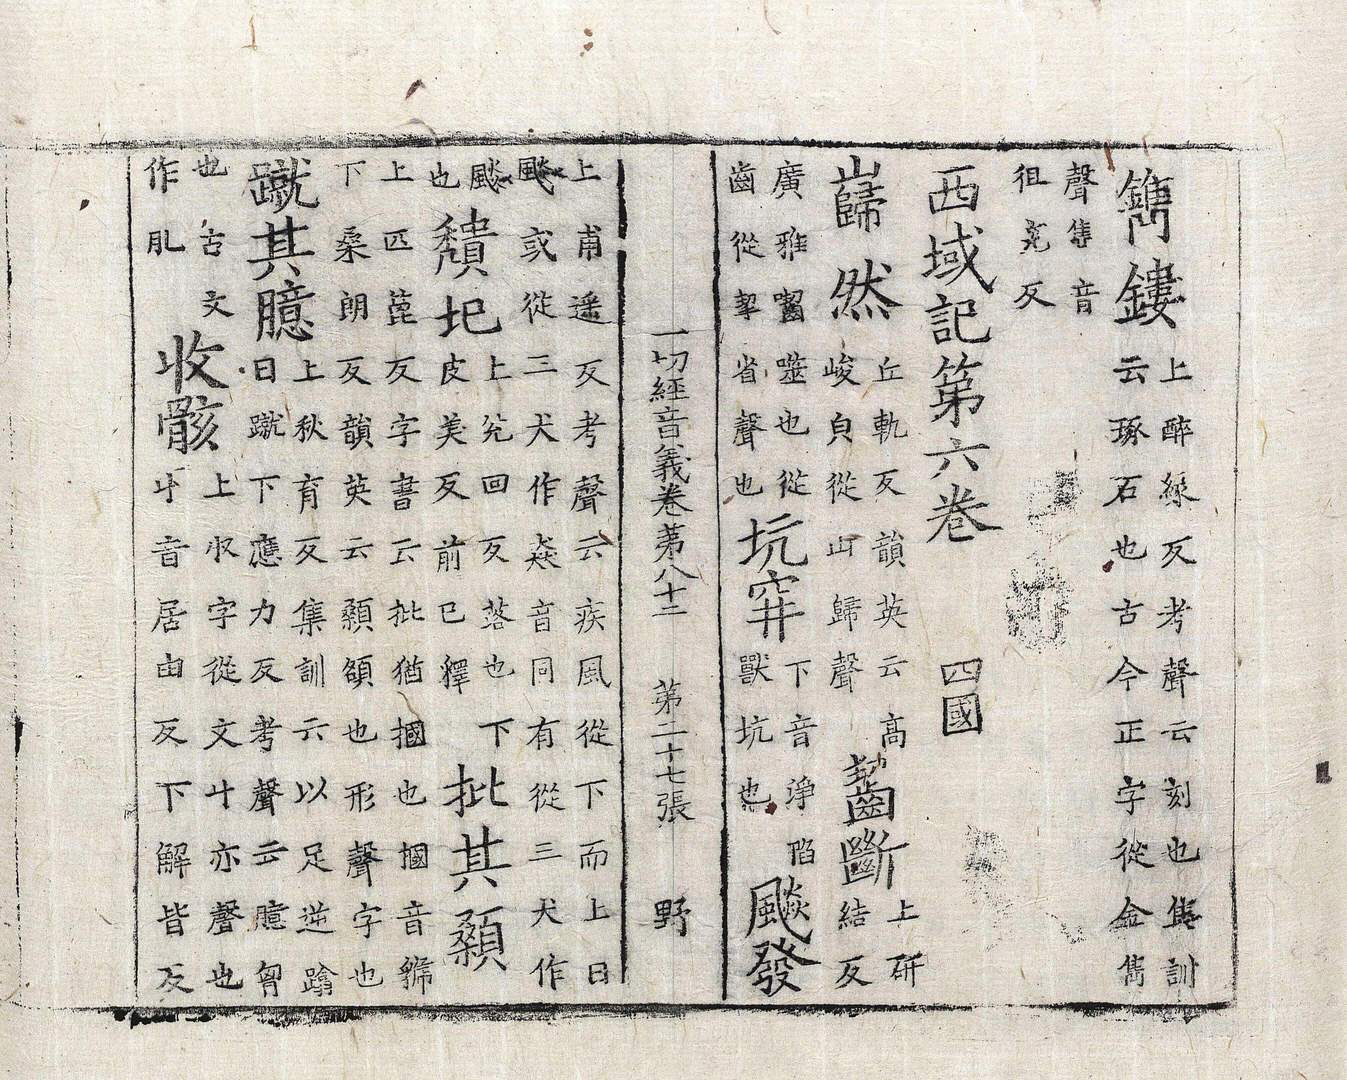 鐫鏤上醉緣反考聲云刻也雋訓
云琢石也古今正字從金雋
聲雋音
徂兗反
西域記第六卷 四國
巋然丘軌反韻英云高
峻皃從山歸聲
齧斷上研
結反
廣雅齧噬也從
齒從㓞省聲也
坑穽下音淨陷
獸坑也
飈發
一切經音義卷苐八十二 第二十七張 野
上甫遥反考聲云疾風從下而上曰
飈或從三犬作猋音同有從三犬作
飈
也
頹圯上兊回反落也下
皮美反前已釋
批其顙
上匹篦反字書云批猶摑也摑音虢
下桑朗反韻英云顙頟也形聲字也
蹴其臆上秋育反集訓云以足逆蹹
曰蹴下應力反考聲云臆胷
也古文
作肊
收骸上収字從文丩亦聲也
丩音居由反下解皆反